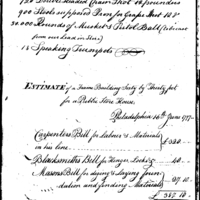 150 Double Headed Chain Shot 18 pounders
900 Stools supposed Prov for Grape Shot 18 d°
20.000 Rounds of Musket & Pistol Ball
15 Speaking Trumpets
ESTIMATE of a Frame Building Sixty by Thirty feet
for a Public Store House.
Philadelphia 16th June 1797
Carpenters Bill for labour & Materials
in his line £320.
Blacksmiths Bill for Hinges Locks &c 20.
Masons Bill for diging & laying foun-
dation and finding Materials 47.10
£387.10